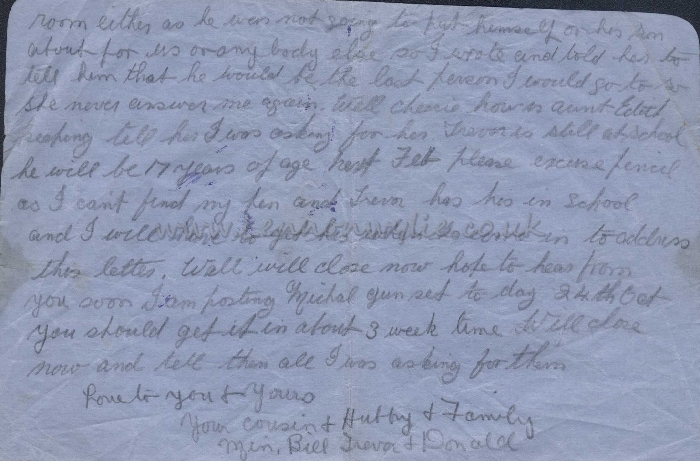 room either as he was not going to put himself or his son
about for us or any body else so I wrote and told her to
tell him that he would be the last person I would go to
she never answer me again. Well cherrie how is aunt Edith
keeping tell her I was asking for her Trevor is still at School
he will be 17 years of age next Feb please excuse pencil
as I cant find my pen and Trevor has his in School
and I will have to get his when comes in to address
this letter. Well will close now hope to hear from
you soon I am posting Michal gun set to day 24th Oct
you should get it in about 3 week time Will close
now and tell them all I was asking for them
Love to you & Yours
Your cousin & Hubby & Family
Min, Bill Trevor & Donald